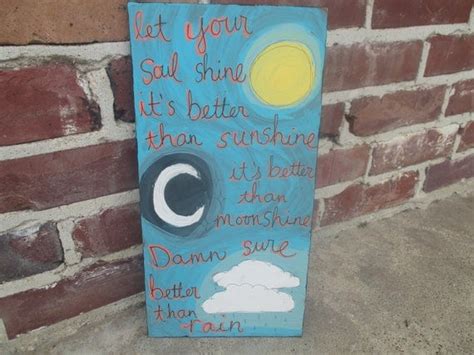 let your
Soul shine
it's better
than sunshine
it's better
than
moonshine
Damn sure
better
than
rain